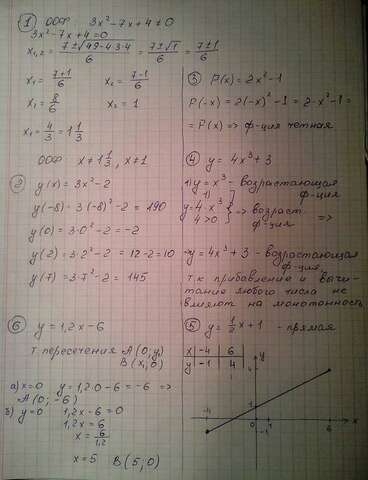 ① ООФ 3x²-7x+4≠0
3x²-7x+4=0
x₁,₂ = (7±√(49-4·3·4))/6 = (7±√1)/6 = (7±1)/6
x₁ = (7+1)/6 x₂ = (7-1)/6
x₁ = 8/6 x₂ = 1
x₁ = 4/3 = 1 1/3
ООФ x≠1 1/3, x≠1
② y(x) = 3x²-2
y(-8) = 3(-8)²-2 = 190
y(0) = 3·0²-2 = -2
y(2) = 3·2²-2 = 12-2 = 10
y(7) = 3·7²-2 = 145
③ P(x) = 2x²-1
P(-x) = 2(-x)²-1 = 2·x²-1 =
= P(x) => ф-ция четная
④ y = 4x³+3
1) y = x³ - возрастающая
ф-ция
y = 4·x³
4>0 => возраст.
ф-ция =>
=> y = 4x³+3 - возрастающая
ф-ция
т.к прибавление и вычи-
тание любого числа не
влияют на монотонность
⑥ y = 1,2x-6
т пересечения A(0;y)
B(x;0)
а) x=0 y = 1,2·0-6 = -6 =>
A(0;-6)
б) y=0 1,2x-6=0
1,2x=6
x = 6/1,2
x = 5 B(5;0)
⑤ y = 1/2 x+1 - прямая
x -4 6
y -1 4
y
4
1
-4
-1
1
6
x